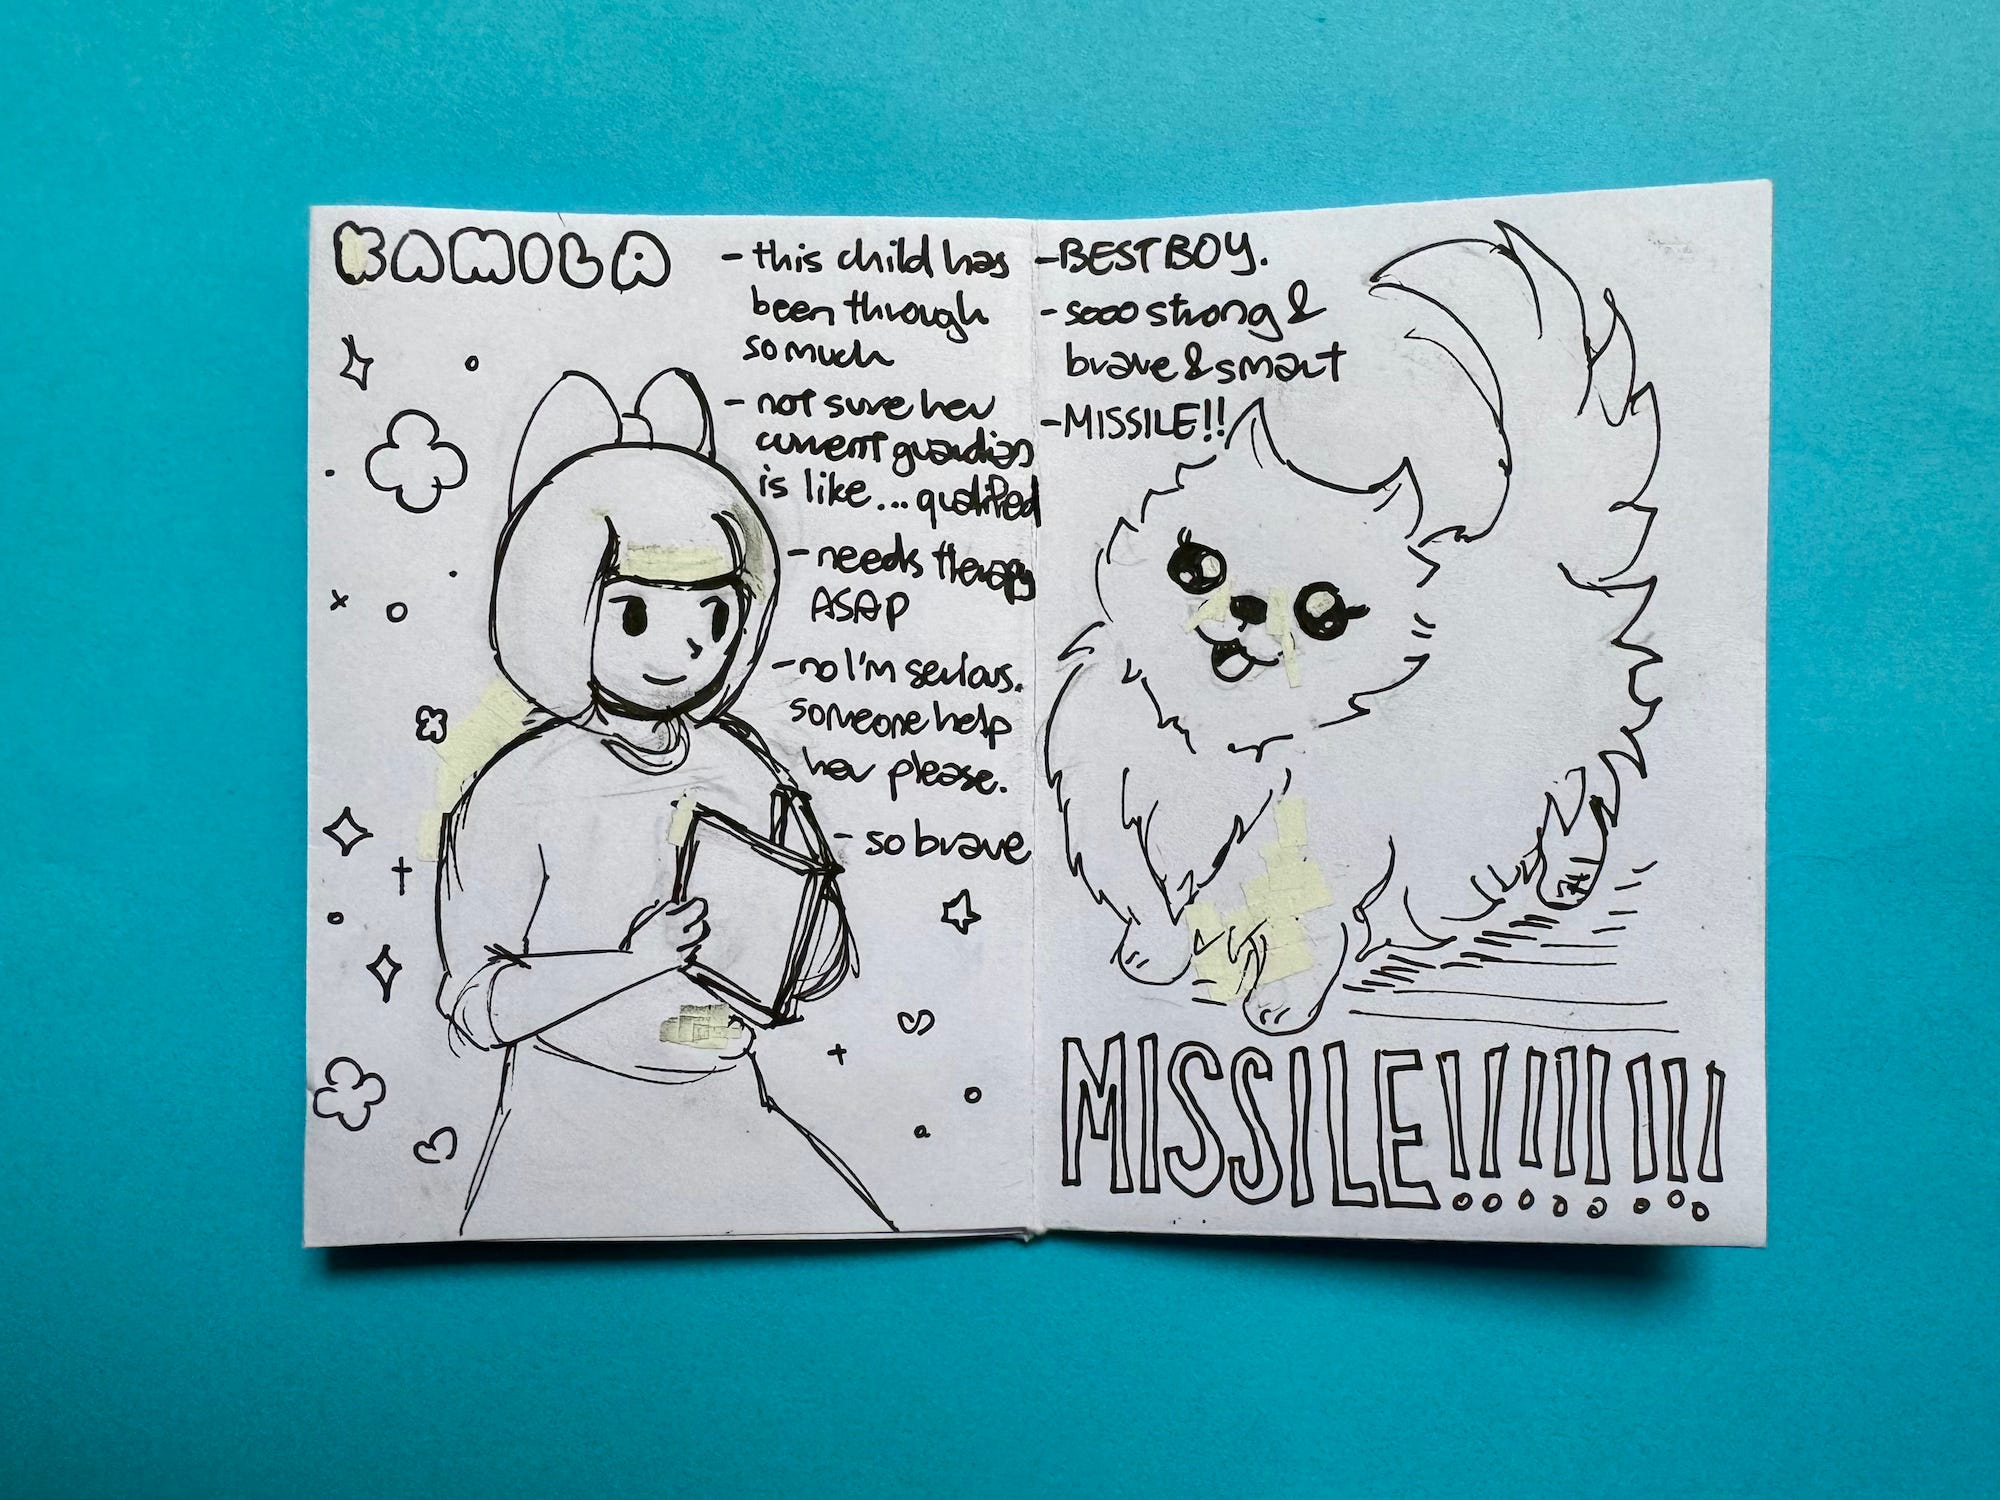 KAMILA
- this child has
been through
so much
- not sure her
current guardian
is like... qualified
- needs therapy
ASAP
- no I'm serious.
someone help
her please.
- so brave
- BEST BOY.
- sooo strong &
brave & smart
- MISSILE!!
MISSILE!!!!!!!!!